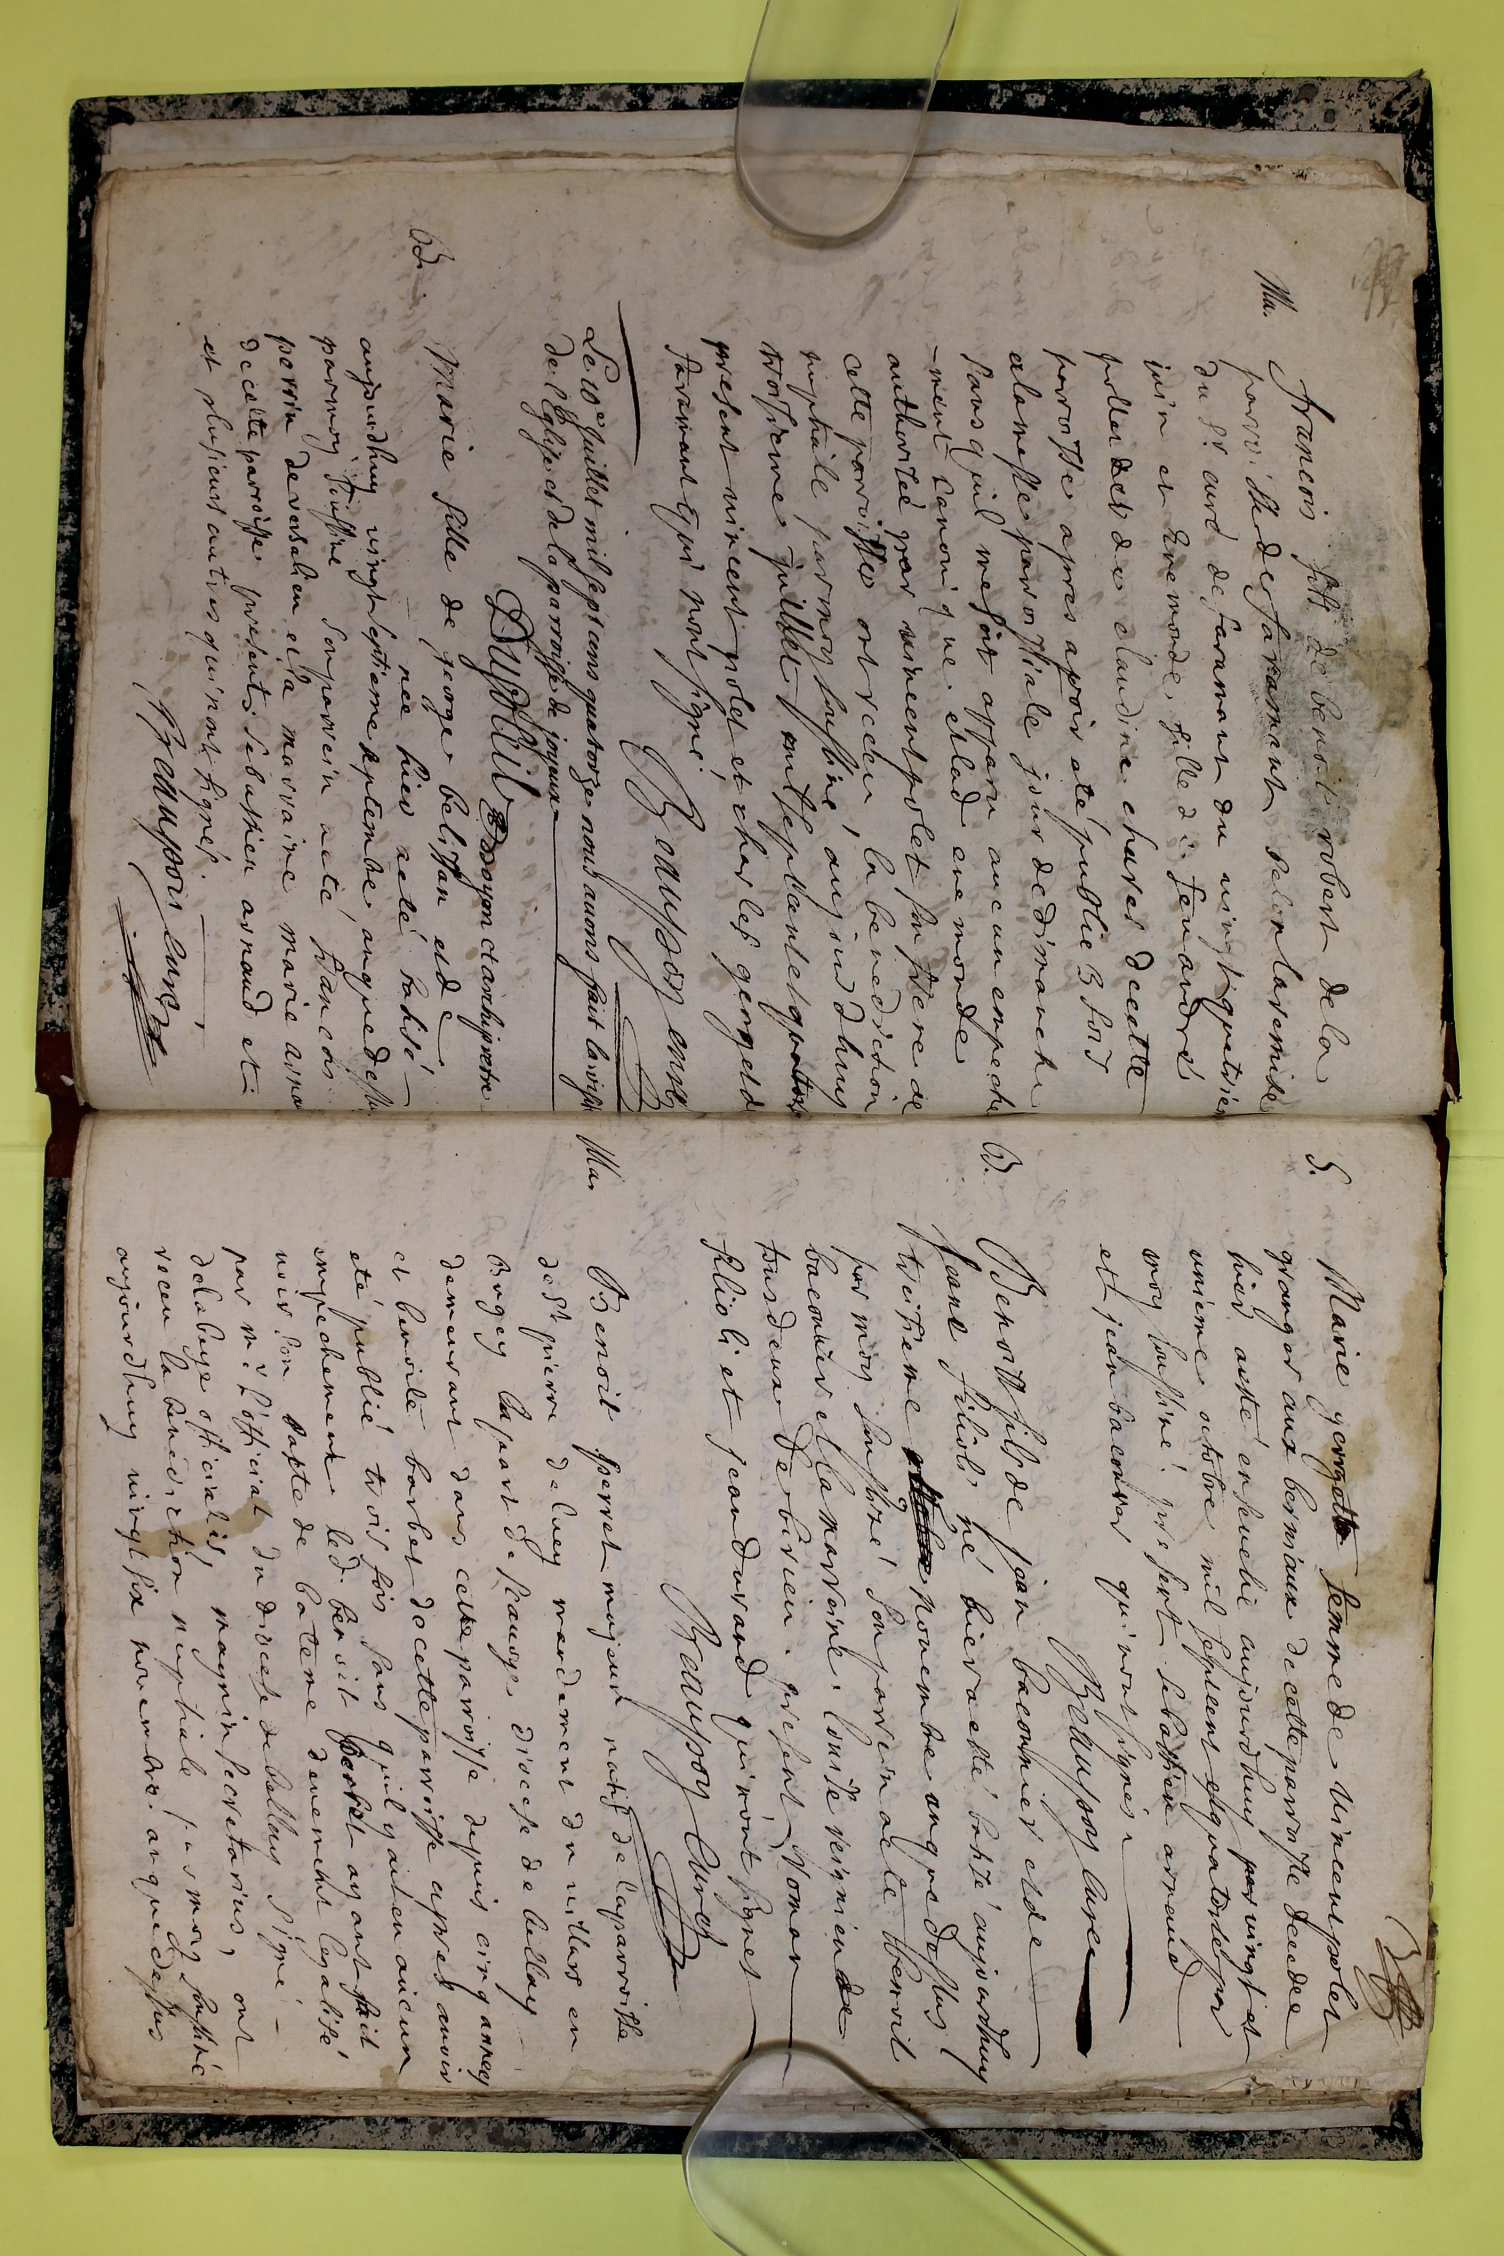 Ma.
francois fils de benoit robert de la
parroisse de faramant selon la remise
du sr curé de faramant du vingtquatrieme
juin et Evemonde fille de feu andré
pollet et de claudine chares de cette
parroisse apres avoir eté publié 3 fois
a la messe parroissiale jour de dimanche
sans quil me soit apparu aucun empeche
-ment canonique. elad evemonde
authorisée par vincent polet son frere de
cette parroisse ont receu la benediction
nuptiale par moy soussiné aujourdhuy
troisieme juillet mil sept cent et quattorze
present vincent polet et charles georget de
faramant qui n'ont signé
Beaupoy curé
Le 10e Juillet mil sept cens quatorze nous avons fait la visite
de l'Eglise et de la parroisse de joyeux
Dupuis Doyen et archiprestre
B.
Marie fille de george belissan et de
née hier a eté batisé
aujourdhuy vingt septieme septembre an que dessus
par moy soussine son parrein a eté francois
perrin de versalieu et sa marraine marie arnaud
de cette parroisse present sebastien arnaud et
et plusieurs autres qui n'ont signés.
Beaupoy curé
S.
Marie georgette femme de vincent polet
granger aux bermiaux de cette parroisse decedee
hier a esté ensevelie aujourdhuy par vingt et
unieme octobre mil sept cent et quatorze par
moy soussiné. present sebastien arnaud
et jean baconier qui n'ont signés
Beaupoy curé
B.
Benoist fils de jean baconnier et de
Jeane filioli né hier a esté batisé aujourdhuy
treisieme novembre an que dessus
par moy soussiné son parrein a eté benoit
baconnier et la marreine. Louise reignieu de
tous deux de birieu. present Romain
filioli et jean durand qui n'ont signet
Beaupoy curé
Ma.
Benoit perret majeur natif de la parroisse
de st pierre de lucy mandement du villars en
Bugey la part de france diocese de bellay
demeurant dans cette parroisse depuis cinq annees
et benoite barbet de cette parroisse apres avoir
eté publié trois fois sans quil y ait eu aucun
empechement led. benoit perret ayant fait
voir son extrait de bateme duement legalisé
par mr l'official du diocese de bellay signé
delabaye officialis magnin secretarius, ont
receu la benediction nuptiale par moy soussiné
aujourdhuy vingt six novembre an que dessus